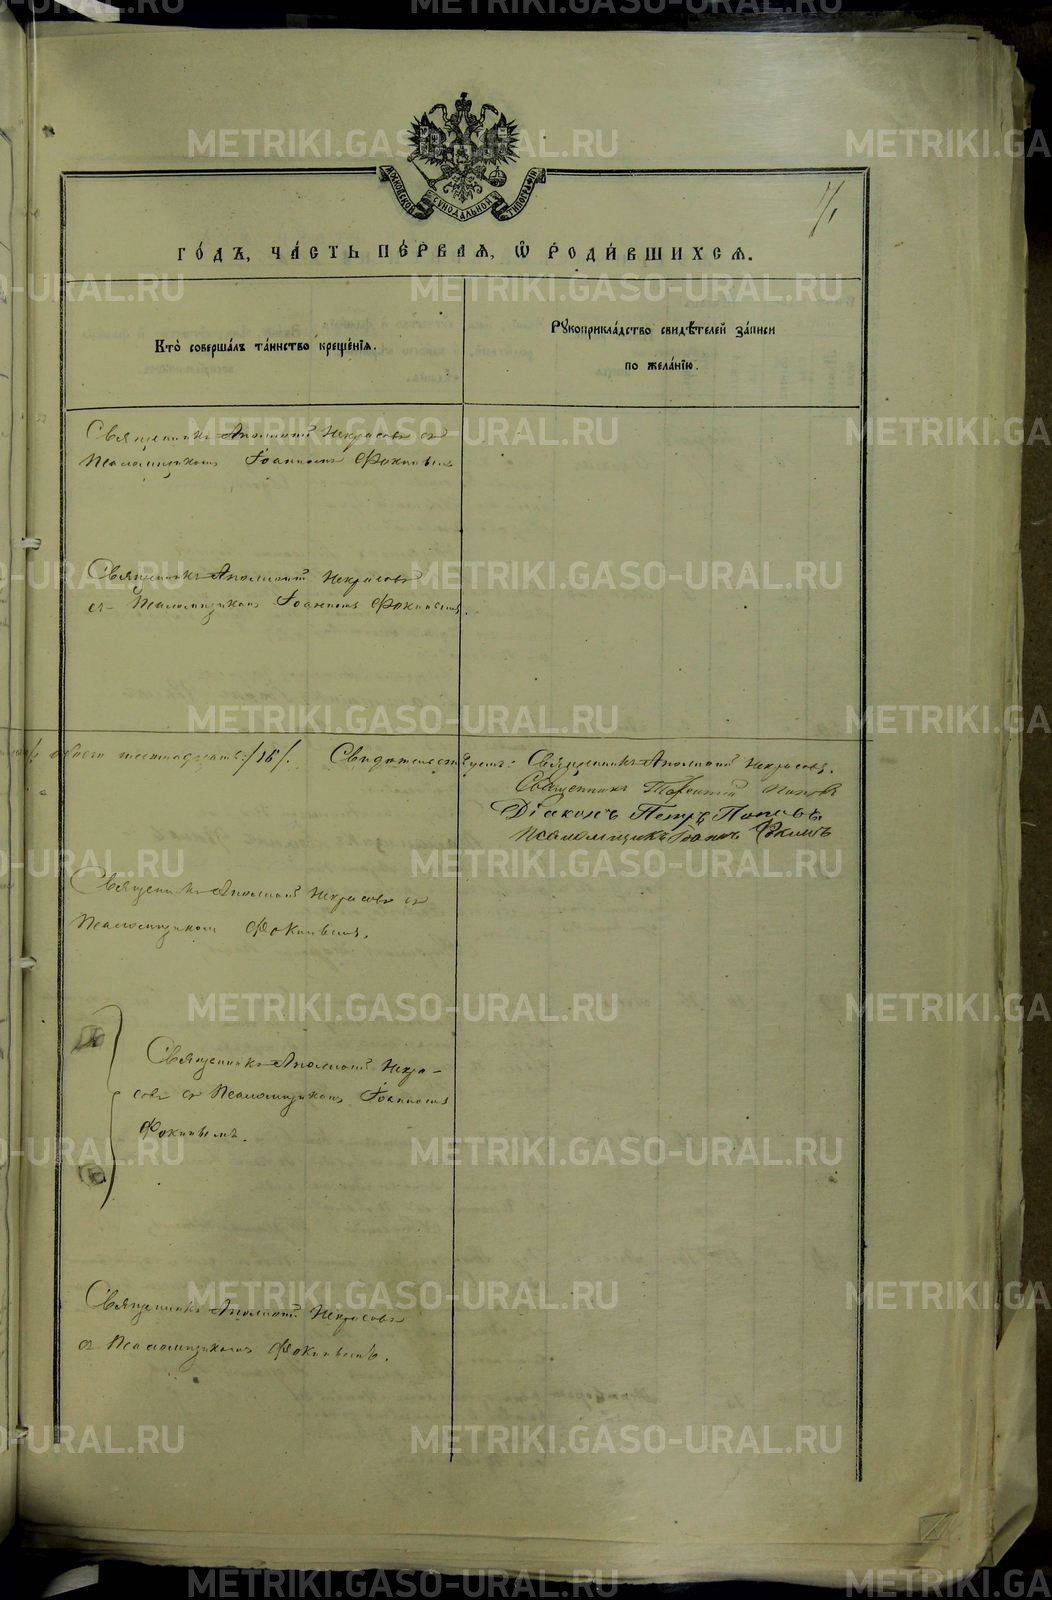 METRIKI.GASO-URAL.RU
МОСКОВСКОЙ СУНОДАЛЬНОЙ ТИПОГРАФІИ
ГО́ДЪ, ЧА́СТЬ ПЕ́РВАЯ, Ѡ҆ РОДИ́ВШИХСЯ.
Кто̀ соверша́лъ та́инство креще́нїя.
Рꙋкоприкла́дство свидѣ́телей за́писи
по жела́нїю.
Священникъ Аполлоній Некрасовъ съ
Псаломщикомъ Іоанномъ Фокинымъ
Священникъ Аполлоній Некрасовъ
съ Псаломщикомъ Іоанномъ Фокинымъ.
обоего шестнадцать /16/. Свидетельствуемъ: Священникъ Аполлоній Некрасовъ.
Священникъ Попов
Діаконъ Петръ Поповъ
Псаломщикъ Іоаннъ Фокинъ
Священникъ Аполлоній Некрасовъ съ
Псаломщикомъ Фокинымъ.
Священникъ Аполлоній Некра-
совъ съ Псаломщикомъ Іоанномъ
Фокинымъ.
Священникъ Аполлоній Некрасовъ
съ Псаломщикомъ Фокинымъ.